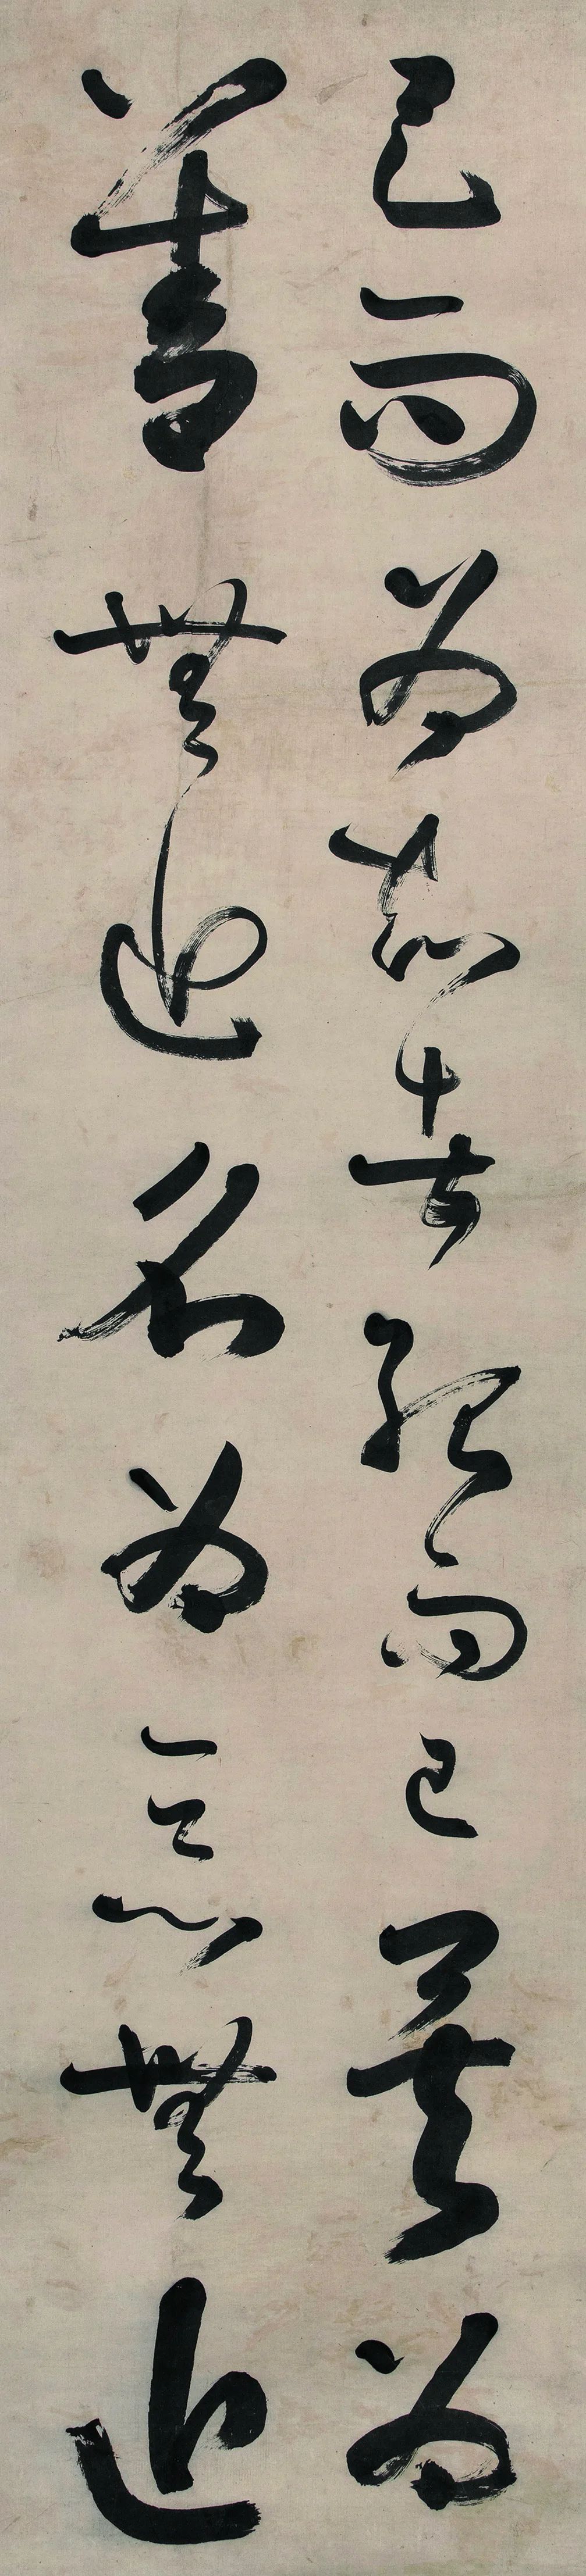 已而為知者殆而已矣為
善無近名為惡無近